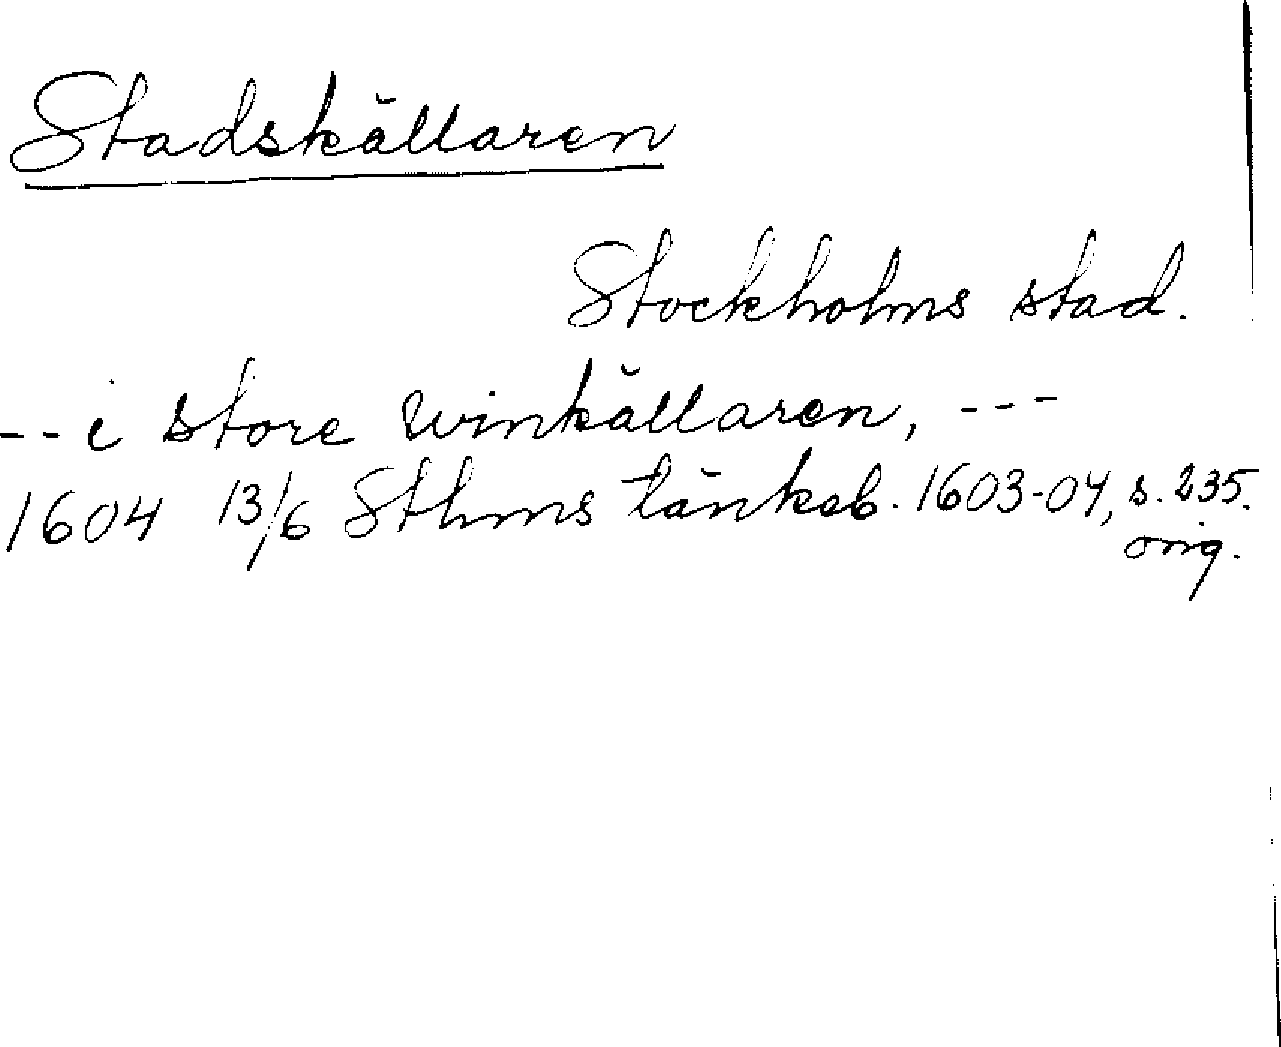 Stadskällaren
Stockholms stad.
-- i store winkällaren, ---
1604 13/6 Sthms tänkeb. 1603-04, s. 235.
orig.